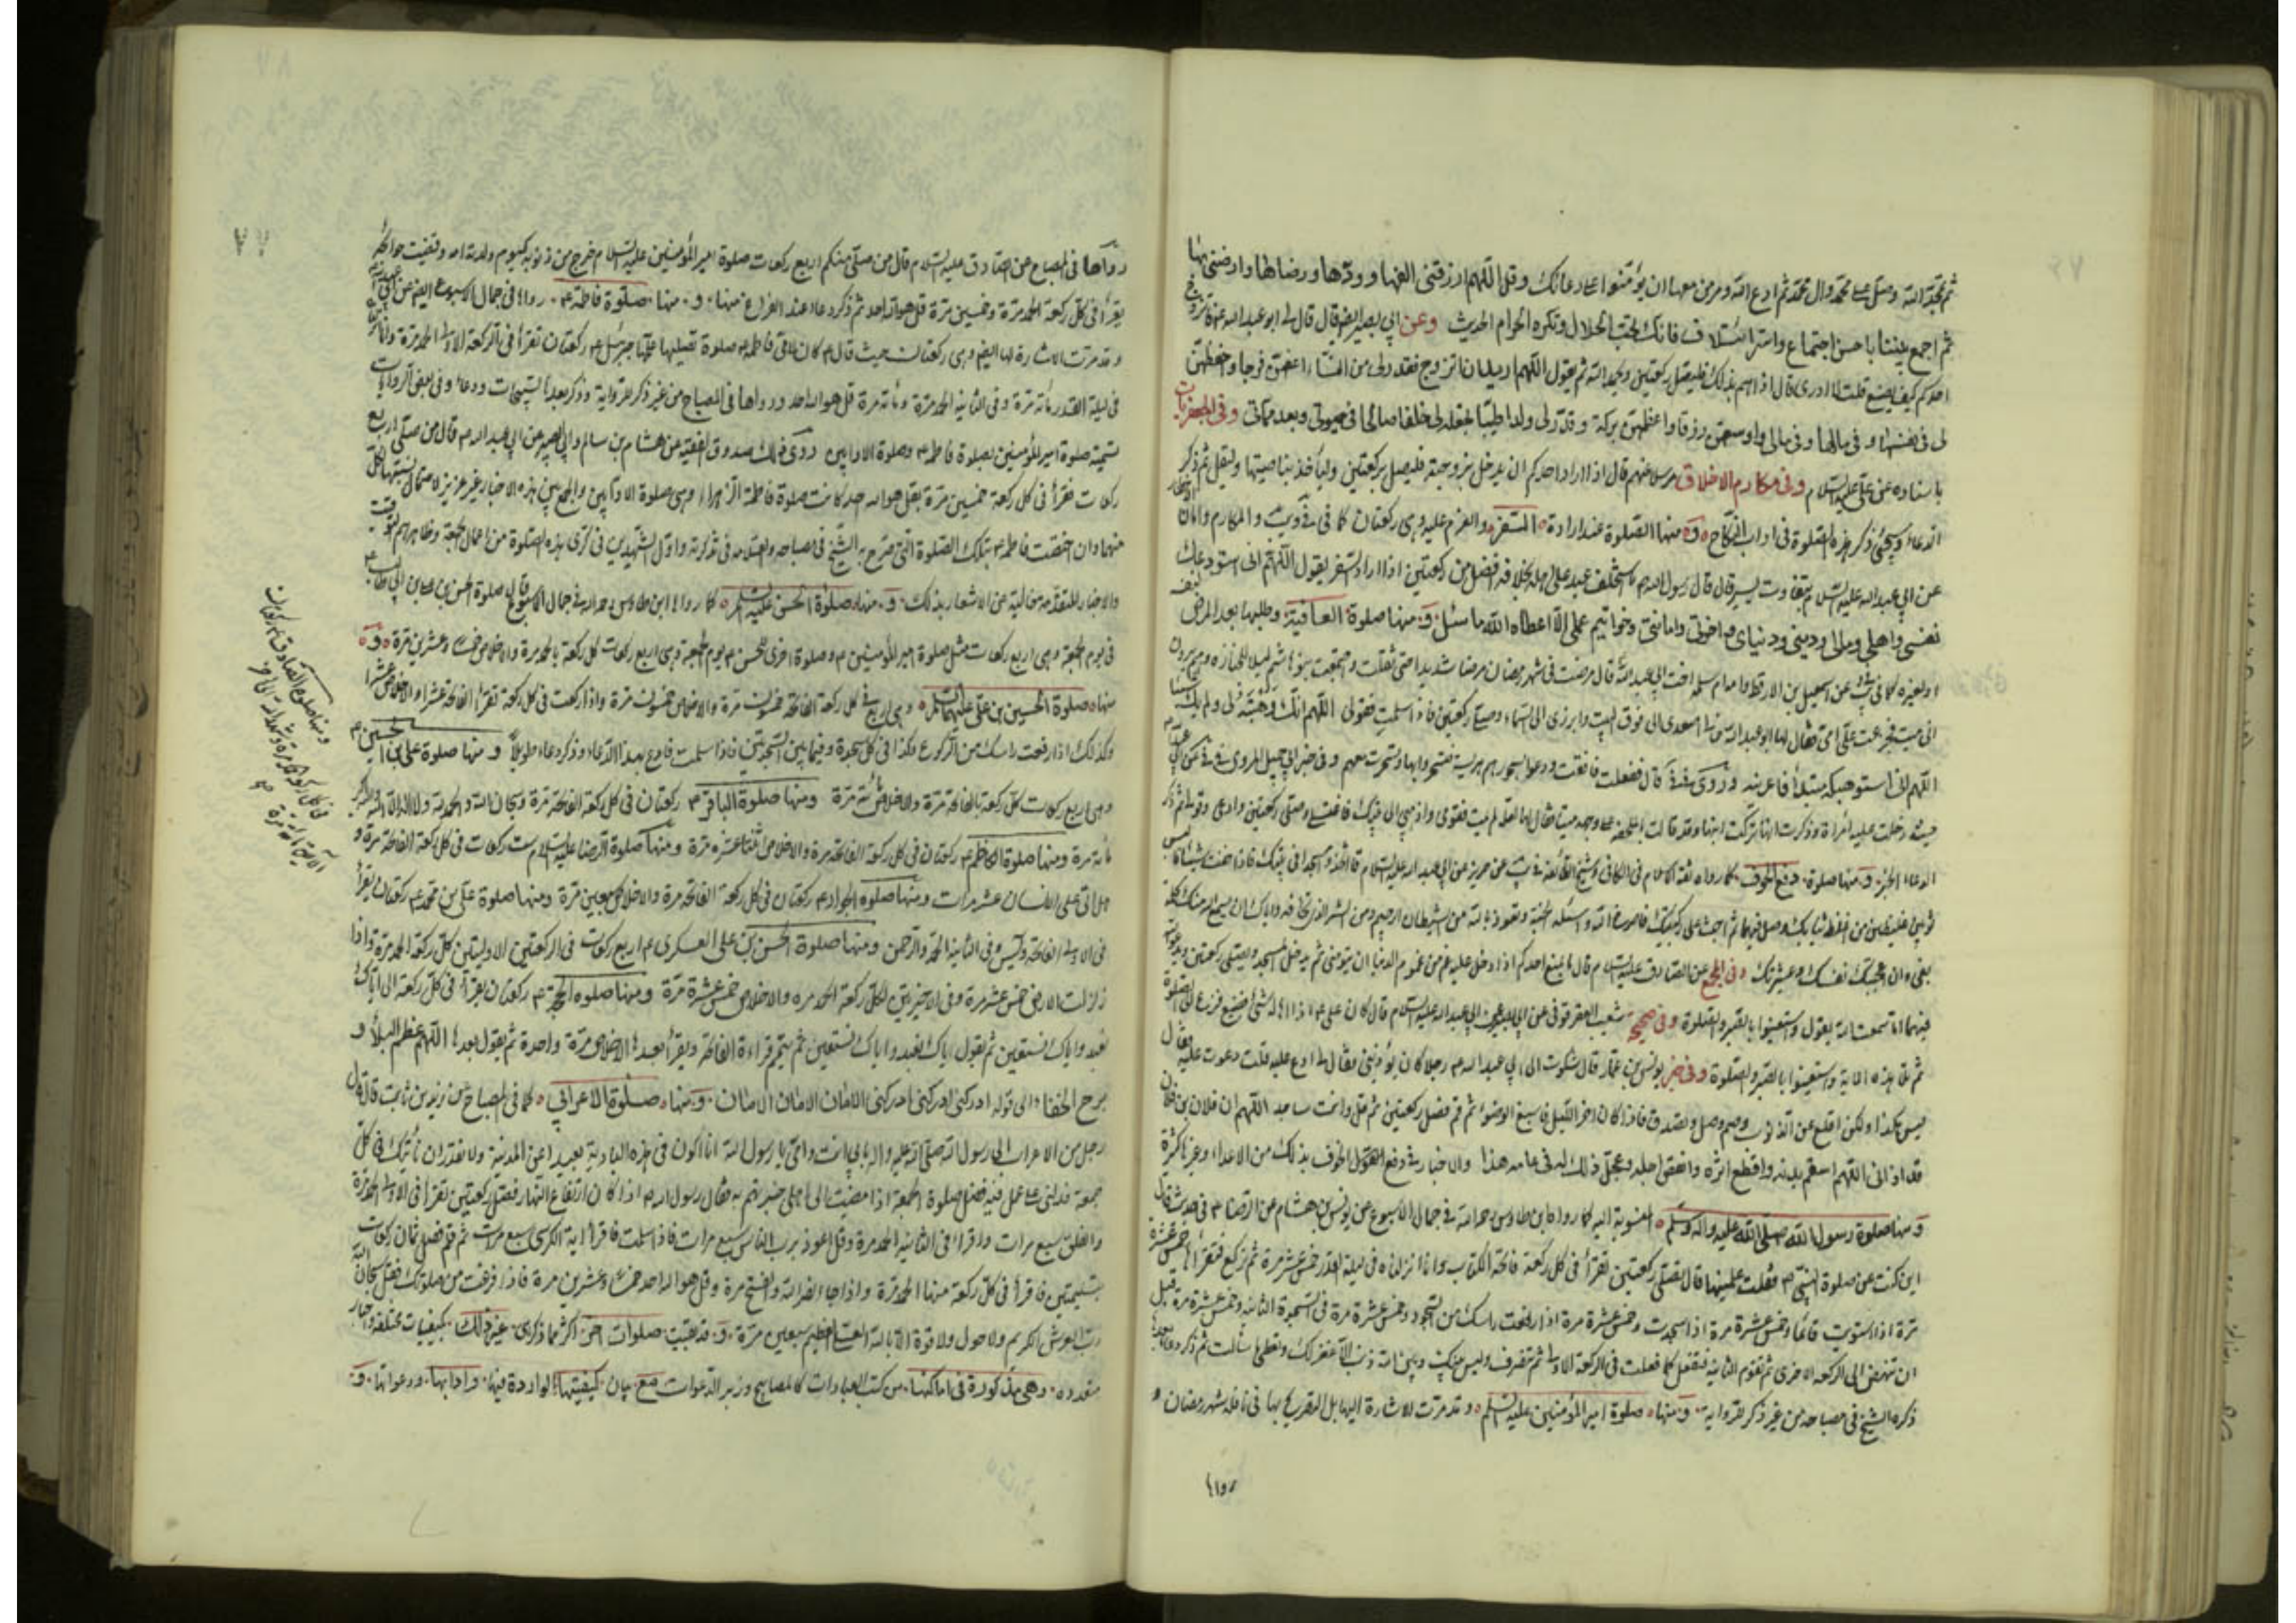 ثم تمجد الله وصل على محمد وآل محمد ثم ادع الله ومر من معها ان يؤمنوا على دعائك وقل اللهم ارزقني الفها وودها ورضاها وارضني بها
ثم اجمع بيننا باحسن اجتماع واسر ائتلاف فانك تحب الحلال وتكره الحرام الحديث وعن ابي بصير ايضا قال قال لي ابو عبد الله اذا تزوج
احدكم كيف يصنع قلت لا ادري قال اذا هم بذلك فليصل ركعتين ويحمد الله ثم يقول اللهم اريد ان اتزوج فقدر لي من النساء اعفهن فرجا واحفظهن
لي في نفسها وفي مالي واوسعهن رزقا واعظمهن بركة وقدر لي ولدا طيبا تجعله لي خلفا صالحا في حيوتي وبعد مماتي وفي الجعفريات
باسناده عن علي عليه السلام وفي مكارم الاخلاق مرسلا عنهم قال اذا اراد احدكم ان يدخل بزوجته فليصل ركعتين وليأخذ بناصيتها وليقل ثم ذكر
الدعاء ويجيء ذكر هذه الصلوة في اداب النكاح و منها الصلوة عند ارادة السفر والعزم عليه وهي ركعتان كما في في ويب والمكارم وامان
عن ابي عبد الله عليه السلام بتفاوت يسير قال قال رسول الله ما استخلف عبد على اهله بخلافة افضل من ركعتين اذا اراد سفر يقول اللهم اني استودعك
نفسي واهلي ومالي وديني ودنياي واخرتي وامانتي وخواتيم عملي الا اعطاه الله ما سئل و منها صلوة العافية وطلبها بعد المرض لنفسه
او لغيره كما في عن اسمعيل بن الارقط وامه ام سلمه اخت ابي عبد الله قال مرضت في شهر رمضان مرضا شديدا حتى ثقلت واجتمعت بنو هاشم ليلا للجنازة وهم يرون
اني ميت فجزعت علي امي فقال لها ابو عبد الله خالي اصعدي الى فوق البيت وابرزي الى السماء وصلي ركعتين فاذا سلمت فقولي اللهم انك وهبته لي ولم يك شيئا
اللهم اني استوهبكه مبتدئا فاعرنيه قال ففعلت فافقت وقعدت ودعوا بسحور لهم هريسة فتسحروا بها وتسحرت معهم وفي خبر
حيث دخلت عليه امراة وذكرت انها تركت ابنها وقد قالت بالملحفة على وجهه ميتا فقال لها لعله لم يمت فقومي واذهبي الى بيتك فاغتسلي وصلي ركعتين وادعي
الدعاء الخبر و منها صلوة دفع الخوف كما رواه ثقة الاسلام في الكافي وشيخ الطائفة في يب عن حريز عن ابي عبد الله عليه السلام قال اتخذ مسجدا في بيتك فاذا خفت شيئا فالبس
ثوبين غليظين من اغلظ ثيابك وصل فيهما ثم اجث على ركبتيك فاصرخ الى الله واسئله الجنة وتعوذ بالله من شر الذي تخافه واياك ان يسمع الله منك كلمة
بغي وان اعجبتك نفسك وعشيرتك وفي المجمع عن الصادق عليه السلام قال ما يمنع احدكم اذا دخل عليه غم من غموم الدنيا ان يتوضى ثم يدخل المسجد ويصلي ركعتين
فيهما اما سمعت الله يقول واستعينوا بالصبر والصلوة وفي صحيح شعيب العقرقوفي عن ابي بصير عن ابي عبد الله عليه السلام قال كان علي اذا هاله شيء فزع الى الصلوة
ثم تلا هذه الاية واستعينوا بالصبر والصلوة وفي خبر يونس بن عمار قال شكوت الى ابي عبد الله رجلا كان يؤذيني فقال لي ادع عليه قلت دعوت عليه قال
ليس هكذا ولكن اقلع عن الذنوب وصم وصل وتصدق فاذا كان اخر الليل فاسبغ الوضوء ثم قم فصل ركعتين ثم قل وانت ساجد اللهم ان فلان بن فلان
قد اذاني اللهم اسقم بدنه واقطع اثره وانقص اجله وعجل ذلك له في عامه هذا والاخبار في دفع الهول الخوف بذلك من الاعداء وغيرها كثيرة
و منها صلوة رسول الله صلى الله عليه واله وسلم المنسوبة اليه كما رواه ابن طاوس رحمه الله في جمال الاسبوع عن يونس بن هشام عن الرضا في حديث قال
اين كنت عن صلوة النبي فقلت علمنيها قال تصلي ركعتين تقرأ في كل ركعة فاتحة الكتاب وانا انزلناه في ليلة القدر خمس عشر مرة ثم تركع فتقرأها خمس عشرة
مرة اذا استويت قائما وخمس عشرة مرة اذا سجدت وخمس عشرة مرة اذا رفعت راسك من السجود وخمس عشرة مرة في السجدة الثانية وخمس عشرة مرة قبل
ان تنهض الى الركعة الاخرى ثم تقوم الثانية فتفعل كما فعلت في الركعة الاولى ثم تنصرف وليس بينك وبين الله ذنب الا غفر لك وتعطى ما سالت ثم ذكر دعاء بعدها
ذكره الشيخ في مصباحه من غير ذكر للرواية و منها صلوة امير المؤمنين عليه السلم وقد مرت الاشارة اليها بل التصريح بها في نافلة شهر رمضان و
رواها
٧٧
رواها في المصباح عن الصادق عليه السلام قال من صلى منكم اربع ركعات صلوة امير المؤمنين عليه السلام خرج من ذنوبه كيوم ولدته امه وقضيت حوائجه
يقرأ في كل ركعة الحمد مرة وخمسين مرة قل هو الله احد ثم ذكر دعاء عند الفراغ منها و منها صلوة فاطمة رواها في جمال الاسبوع ايضا عن
وقد مرت الاشارة لها ايضا وهي ركعتان حيث قال كان لامي فاطمة صلوة تصليها علمها جبرئيل ركعتان تقرأ في الركعة الاولى الحمد مرة وانا انزلناه
في ليلة القدر مائة مرة وفي الثانية الحمد مرة ومائة مرة قل هو الله احد ورواها في المصباح من غير ذكر للرواية وذكر بعدها تسبيحات ودعاء وفي بعض الروايات
تسمية صلوة امير المؤمنين بصلوة فاطمة وصلوة الاوابين روى ذلك صدوق الفقيه عن هشام بن سالم وابي بصير عن ابي عبد الله قال من صلى اربع
ركعات تقرأ في كل ركعة خمسين مرة بقل هو الله احد كانت صلوة فاطمة الزهراء وهي صلوة الاوابين والجمع بين هذه الاخبار غير عزيز لاحتمال نسبتها لكل
منهما وان اختصت فاطمة بتلك الصلوة التي صرح به الشيخ في مصباحه والعلامه في تذكرته واول الشهيدين في ذكرى هذه الصلوة من اعمال الجمعة وظاهرهم توقيت
والاخبار المتقدمة خالية عن الاشعار بذلك و منها صلوة الحسن عليه السلم كما رواها ابن طاوس رحمه الله في جمال الاسبوع قال صلوة الحسن بن علي بن ابي طالب
في يوم الجمعة وهي اربع ركعات مثل صلوة امير المؤمنين وصلوة اخرى للحسن يوم الجمعة وهي اربع ركعات كل ركعة بالحمد مرة والاخلاص خمسا وعشرين مرة و
منها صلوة الحسين بن علي عليهما السلم وهي اربع في كل ركعة الفاتحة خمسون مرة والاخلاص خمسون مرة واذا ركعت في كل ركعة تقرأ الفاتحة عشرا والاخلاص عشرا
وكذلك اذا رفعت راسك من الركوع وكذا في كل سجدة وفيما بين السجدتين فاذا سلمت فادع بهذا الدعاء وذكر دعاء طويلا و منها صلوة علي بن الحسين
وهي اربع ركعات كل ركعة بالفاتحة مرة والاخلاص مائة مرة ومنها صلوة الباقر ركعتان في كل ركعة الفاتحة مرة وسبحان الله والحمد لله ولا اله الا الله والله اكبر
مائة مرة ومنها صلوة الكاظم ركعتان في كل ركعة الفاتحة مرة والاخلاص اثنتا عشرة مرة ومنها صلوة الرضا عليه السلام ست ركعات في كل ركعة الفاتحة مرة و
هل اتى على الانسان عشر مرات ومنها صلوة الجواد ركعتان في كل ركعة الفاتحة مرة والاخلاص سبعين مرة ومنها صلوة علي بن محمد ركعتان يقرأ
في الاولى الفاتحة ويس وفي الثانية الحمد والرحمن ومنها صلوة الحسن بن علي العسكري اربع ركعات في الركعتين الاوليتين كل ركعة الحمد مرة واذا
زلزلت الارض خمس عشرة مرة وفي الاخيرتين لكل ركعة الحمد مرة والاخلاص خمس عشرة مرة ومنها صلوة الحجة ركعتان يقرأ في كل ركعة الى اياك
نعبد واياك نستعين ثم يقول اياك نعبد واياك نستعين ثم يتم قراءة الفاتحة ويقرأ بعدها الاخلاص مرة واحدة ثم يقول بعدها اللهم عظم البلاء و
برح الخفاء الى قوله ادركني ادركني ادركني الامان الامان الامان و منها صلوة الاعرابي كما في المصباح عن زيد بن ثابت قال قال
رجل من الاعراب الى رسول الله صلى الله عليه واله بابي انت وامي يا رسول الله انا اكون في هذه البادية بعيدا عن المدينة ولا نقدر ان نأتيك في كل
جمعة فدلني على عمل فيه فضل صلوة الجمعة اذا مضيت الى اهلي خبرتهم به فقال رسول الله اذا كان ارتفاع النهار فصل ركعتين تقرأ في الاولى الحمد مرة
والفلق سبع مرات واقرا في الثانية الحمد مرة وقل اعوذ برب الناس سبع مرات فاذا سلمت فاقرأ اية الكرسي سبع مرات ثم قم فصل ثمان ركعات
بتسليمتين فاقرأ في كل ركعة منها الحمد مرة واذا جاء نصر الله والفتح مرة وقل هو الله احد خمسا وعشرين مرة فاذا فرغت من صلوتك فقل سبحان الله
رب العرش الكريم ولا حول ولا قوة الا بالله العلي العظيم سبعين مرة و قد بقيت صلوات اخر اكثر مما ذكر غير ذلك بكيفيات مختلفة واخبار
متعددة وهي مذكورة في اماكنها من كتب العبادات كالمصابيح وزبر الدعوات مع بيان كيفيتها الواردة فيها وادابها ودعواتها و
ومنها صلوة الصادق ركعتان
في كل ركعة مرة وشهد الله الى اخر
الاية مائة مرة